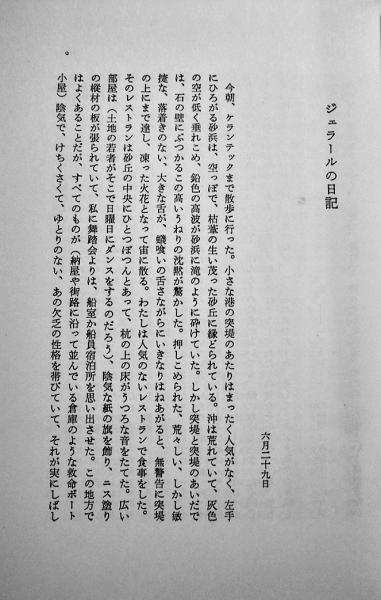 ジェラールの日記
六月二十九日
今朝、ケランテックまで散歩に行った。小さな港の突堤のあたりはまったく人気がなく、左手
にひろがる砂浜は、空っぽで、枯葦の生い茂った砂丘に縁どられている。沖は荒れていて、灰色
の空が低く垂れこめ、鉛色の高波が砂浜に滝のように砕けていた。しかし突堤と突堤のあいだで
は、石の壁にぶつかるこの高いうねりの沈黙が驚かした。押しこめられた、荒々しい、しかし敏
捷な、落着きのない、大きな舌が、蟻喰いの舌さながらにいきなりはねあがると、無警告に突堤
の上にまで達し、凍った火花となって宙に散る。わたしは人気のないレストランで食事をした。
そのレストランは砂丘の中央にひとつぽつんとあって、杭の上の床がうつろな音をたてた。広い
部屋は（土地の若者がそこで日曜日にダンスをするのだろう）、陰気な紙の旗を飾り、ニス塗り
の樅材の板が張られていて、私に舞踏会よりは、船室か船員宿泊所を思い出させた。この地方で
はよくあることだが、すべてのものが（納屋や街路に沿って並んでいる倉庫のような救命ボート
小屋）陰気で、けちくさくて、ゆとりのない、あの欠乏の性格を帯びていて、それが実にしばし